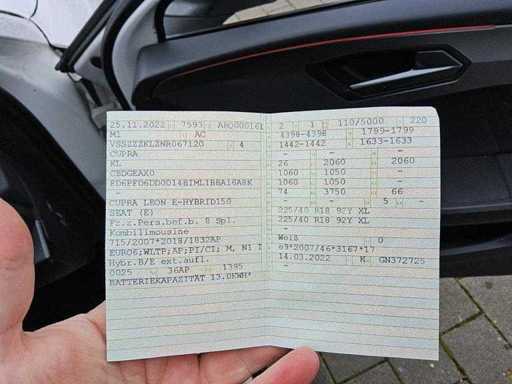 25.11.2022 7593 ARQ000161
M1 AC
VSSZZZKLZNR067120 4
CUPRA
KL
CEDGEAX0
FD6FF06DD0014BIML1B8A16A8K
-
CUPRA LEON E-HYBRID150
SEAT (E)
Fz.z.Pers.bef.b. 8 Spl.
Kombilimousine
715/2007*2018/1832AP
EURO6;WLTP;AP;PI/CI; M, N1 I
Hybr.B/E ext.aufl.
0025 36AP 1395
BATTERIEKAPAZITÄT 13.0KWH*
2 1 110/5000 220
4398-4398 1799-1799
1442-1442 1633-1633
- - -
26 2060 2060
1060 1050 -
1060 1050 -
74 3750 66
- - 5 -
225/40 R18 92Y XL
225/40 R18 92Y XL
-
Weiß 0
e9*2007/46*3167*17
14.03.2022 K GN372725
-